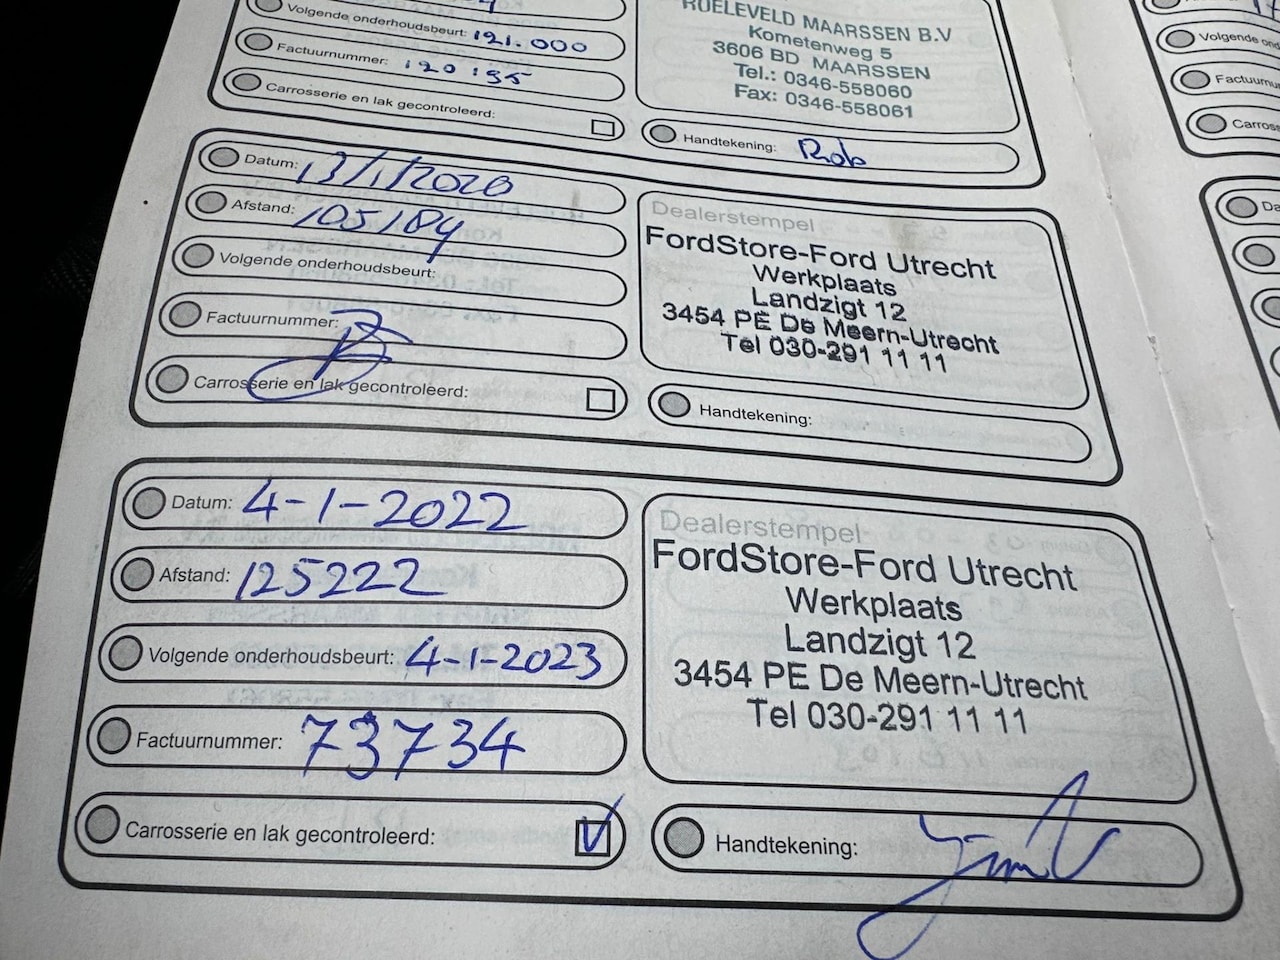 Volgende onderhoudsbeurt: 121.000
Factuurnummer: 120195
Carrosserie en lak gecontroleerd:
ROELEVELD MAARSSEN B.V
Kometenweg 5
3606 BD MAARSSEN
Tel.: 0346-558060
Fax: 0346-558061
Handtekening: Rob
Datum: 13/1/2020
Afstand: 105184
Volgende onderhoudsbeurt:
Factuurnummer:
Carrosserie en lak gecontroleerd:
Dealerstempel
FordStore-Ford Utrecht
Werkplaats
Landzigt 12
3454 PE De Meern-Utrecht
Tel 030-291 11 11
Handtekening:
Datum: 4-1-2022
Afstand: 125222
Volgende onderhoudsbeurt: 4-1-2023
Factuurnummer: 73734
Carrosserie en lak gecontroleerd:
Dealerstempel
FordStore-Ford Utrecht
Werkplaats
Landzigt 12
3454 PE De Meern-Utrecht
Tel 030-291 11 11
Handtekening:
Volgende ond
Factuurnu
Carross
Da